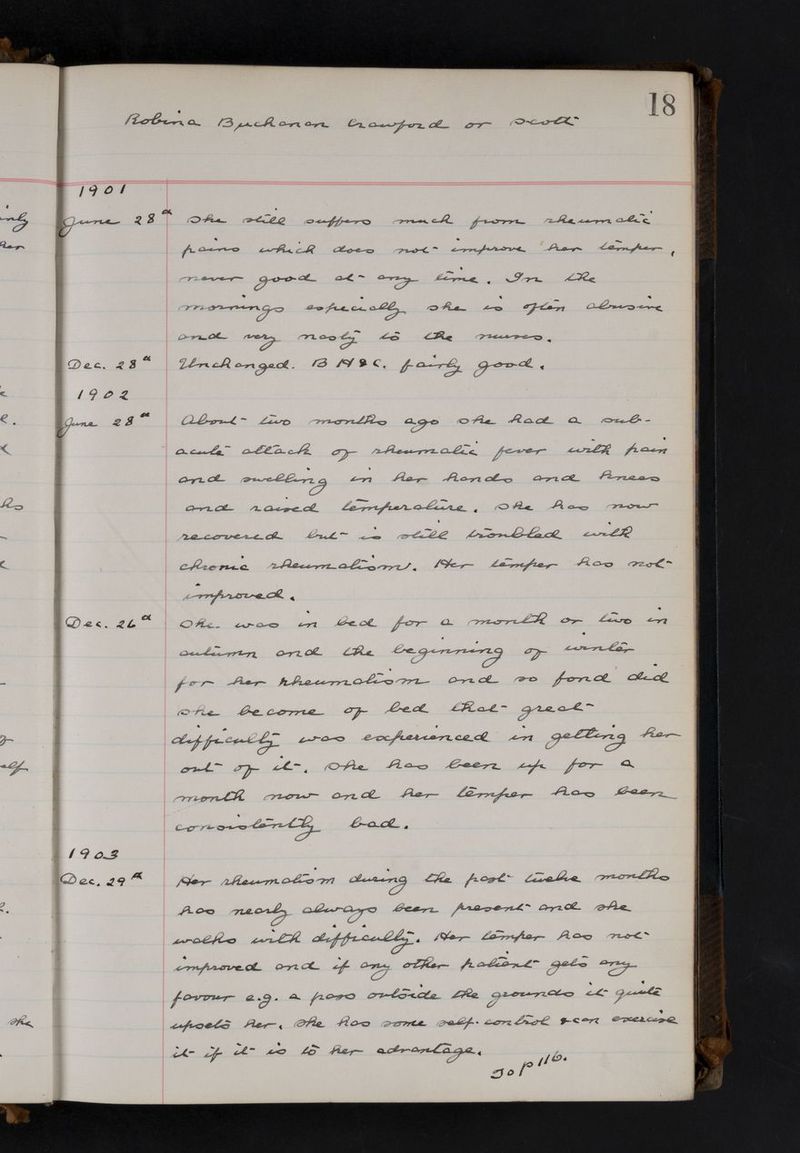 18
Robina Buchanan Crawford or Scott
1901
June 28th She still suffers much from rheumatic
pains which does not improve her temper,
never good at any time. In the
mornings especially she is often abusive
and very nasty to the nurses.
Dec. 28th Unchanged. B H & C. fairly good.
1902
June 28th About two months ago she had a sub-
acute attack of rheumatic fever with pain
and swelling in her hands and knees
and raised temperature. She has now
recovered but is still troubled with
chronic rheumatism. Her temper has not
improved.
Dec. 26th She was in bed for a month or two in
autumn and the beginning of winter
for her rheumatism and so fond did
she become of bed that great
difficulty was experienced in getting her
out of it. She has been up for a
month now and her temper has been
consistently bad.
1903
Dec. 29th Her rheumatism during the past twelve months
has nearly always been present and she
walks with difficulty. Her temper has not
improved and if any other patient gets any
favour e.g. a pass outside the grounds it quite
upsets her. She has some self-control & can exercise
it if it is to her advantage.
To p 116.
her
self
she